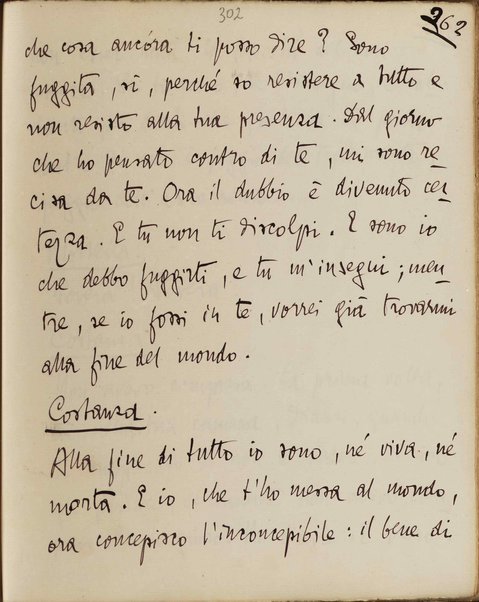 302
262
che cosa ancóra ti posso dire? Sono
fuggita, sì, perché so resistere a tutto e
non resisto alla tua presenza. Dal giorno
che ho pensato contro di te, mi sono re-
cisa da te. Ora il dubbio è divenuto cer-
tezza. E tu non ti discolpi. E sono io
che debbo fuggirti, e tu m'insegui; men-
tre, se io fossi in te, vorrei già trovarmi
alla fine del mondo.
Costanza.
Alla fine di tutto io sono, né viva, né
morta. E io, che t'ho messa al mondo,
ora concepisco l'inconcepibile: il bene di